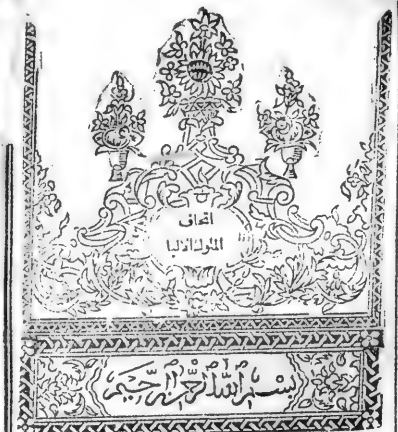 اتحاف
الملوك الالبا
بسم الله الرحمن الرحيم